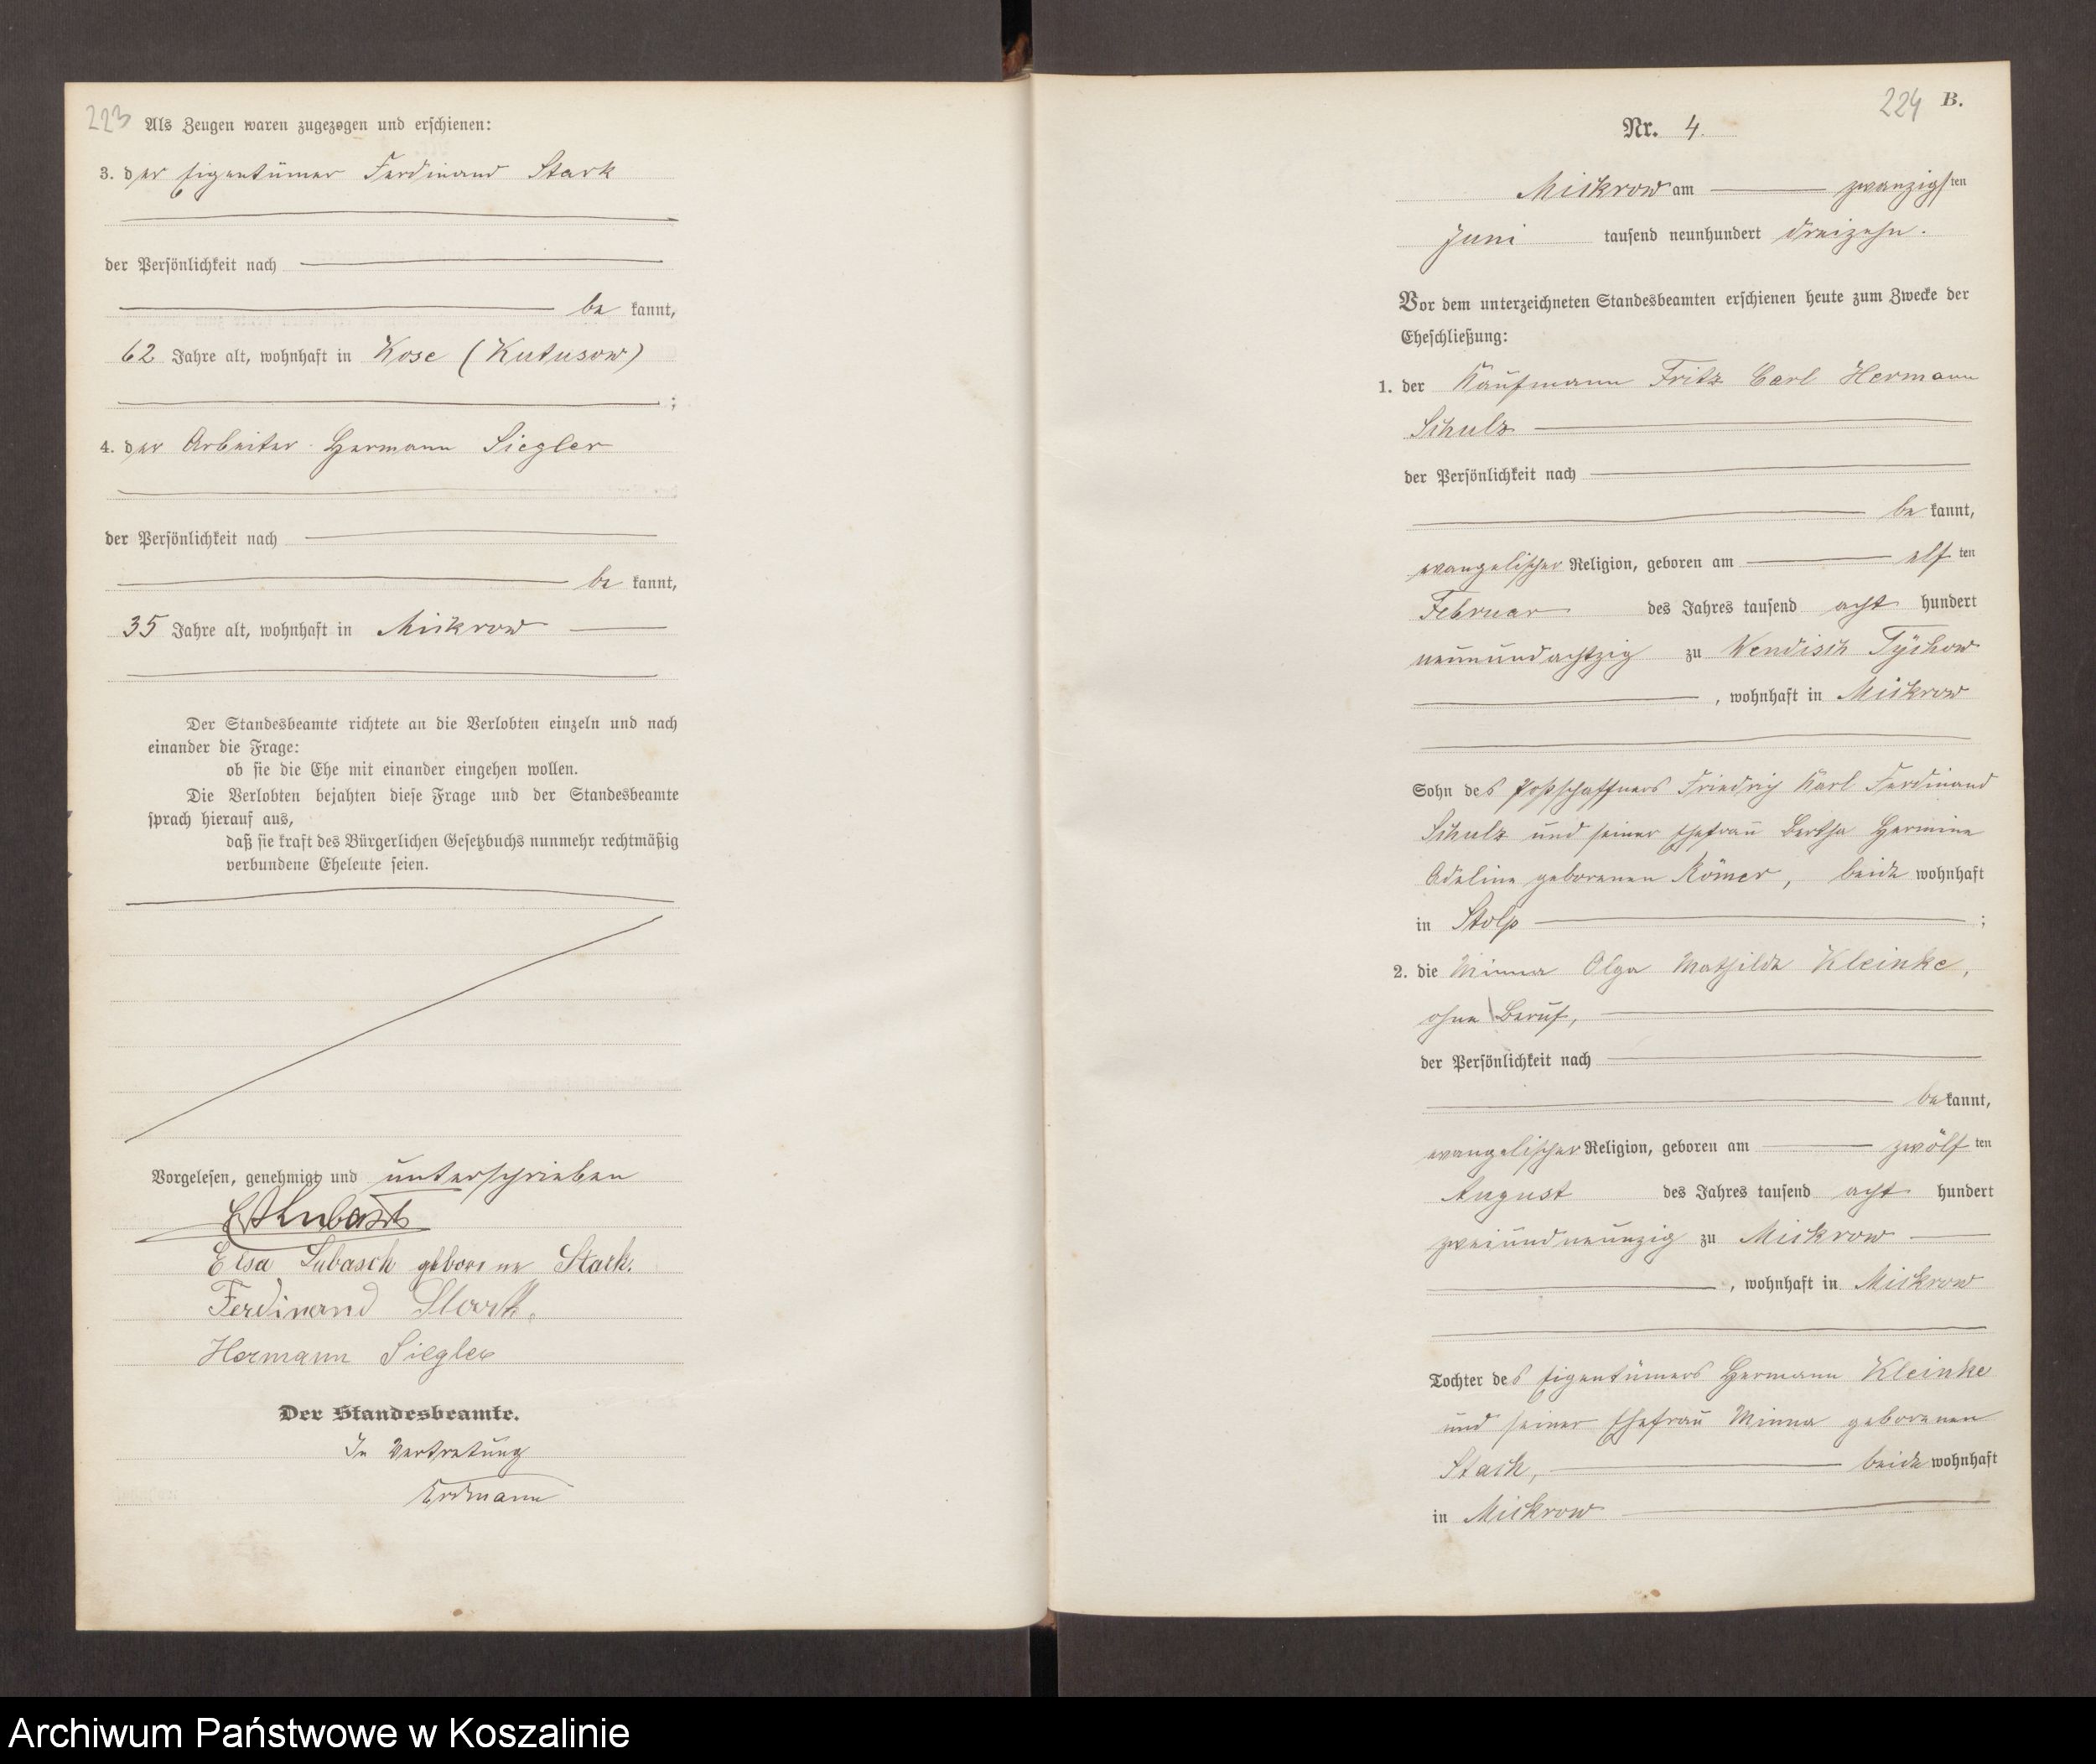 223
Als Zeugen waren zugezogen und erschienen:
3. der Eigentümer Ferdinand Stark
der Persönlichkeit nach
be kannt,
62 Jahre alt, wohnhaft in Kose (Kutusow)
;
4. der Arbeiter Hermann Siegler
der Persönlichkeit nach
be kannt,
35 Jahre alt, wohnhaft in Mickrow
Der Standesbeamte richtete an die Verlobten einzeln und nach
einander die Frage:
ob sie die Ehe mit einander eingehen wollen.
Die Verlobten bejahten diese Frage und der Standesbeamte
sprach hierauf aus,
daß sie kraft des Bürgerlichen Gesetzbuchs nunmehr rechtmäßig
verbundene Eheleute seien.
Vorgelesen, genehmigt und unterschrieben
Lubasch
Elsa Lubasch geborene Stark.
Ferdinand Stark.
Hermann Siegler
Der Standesbeamte.
In Vertretung
Erdmann
224 B.
Nr. 4.
Mickrow am zwanzigsten
Juni tausend neunhundert dreizehn.
Vor dem unterzeichneten Standesbeamten erschienen heute zum Zwecke der
Eheschließung:
1. der Kaufmann Fritz Carl Hermann
Schulz
der Persönlichkeit nach
be kannt,
evangelischer Religion, geboren am elf ten
Februar des Jahres tausend acht hundert
neunundachtzig zu Wendisch Tychow
, wohnhaft in Mickrow
Sohn des Postschaffners Friedrich Karl Ferdinand
Schulz und seiner Ehefrau Bertha Hermine
Adeline geborenen Römer, beide wohnhaft
in Stolp ;
2. die Minna Olga Mathilde Kleinke,
ohne Beruf,
der Persönlichkeit nach
be kannt,
evangelischer Religion, geboren am zwölf ten
August des Jahres tausend acht hundert
zweiundneunzig zu Mickrow
, wohnhaft in Mickrow
Tochter des Eigentümers Hermann Kleinke
und seiner Ehefrau Minna geborenen
Stach, beide wohnhaft
in Mickrow
Archiwum Państwowe w Koszalinie